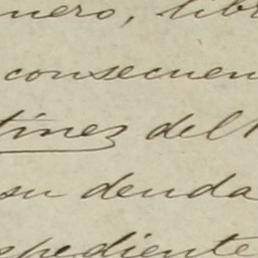 nero, libr
consecuen
tinez del
su deuda
spediente